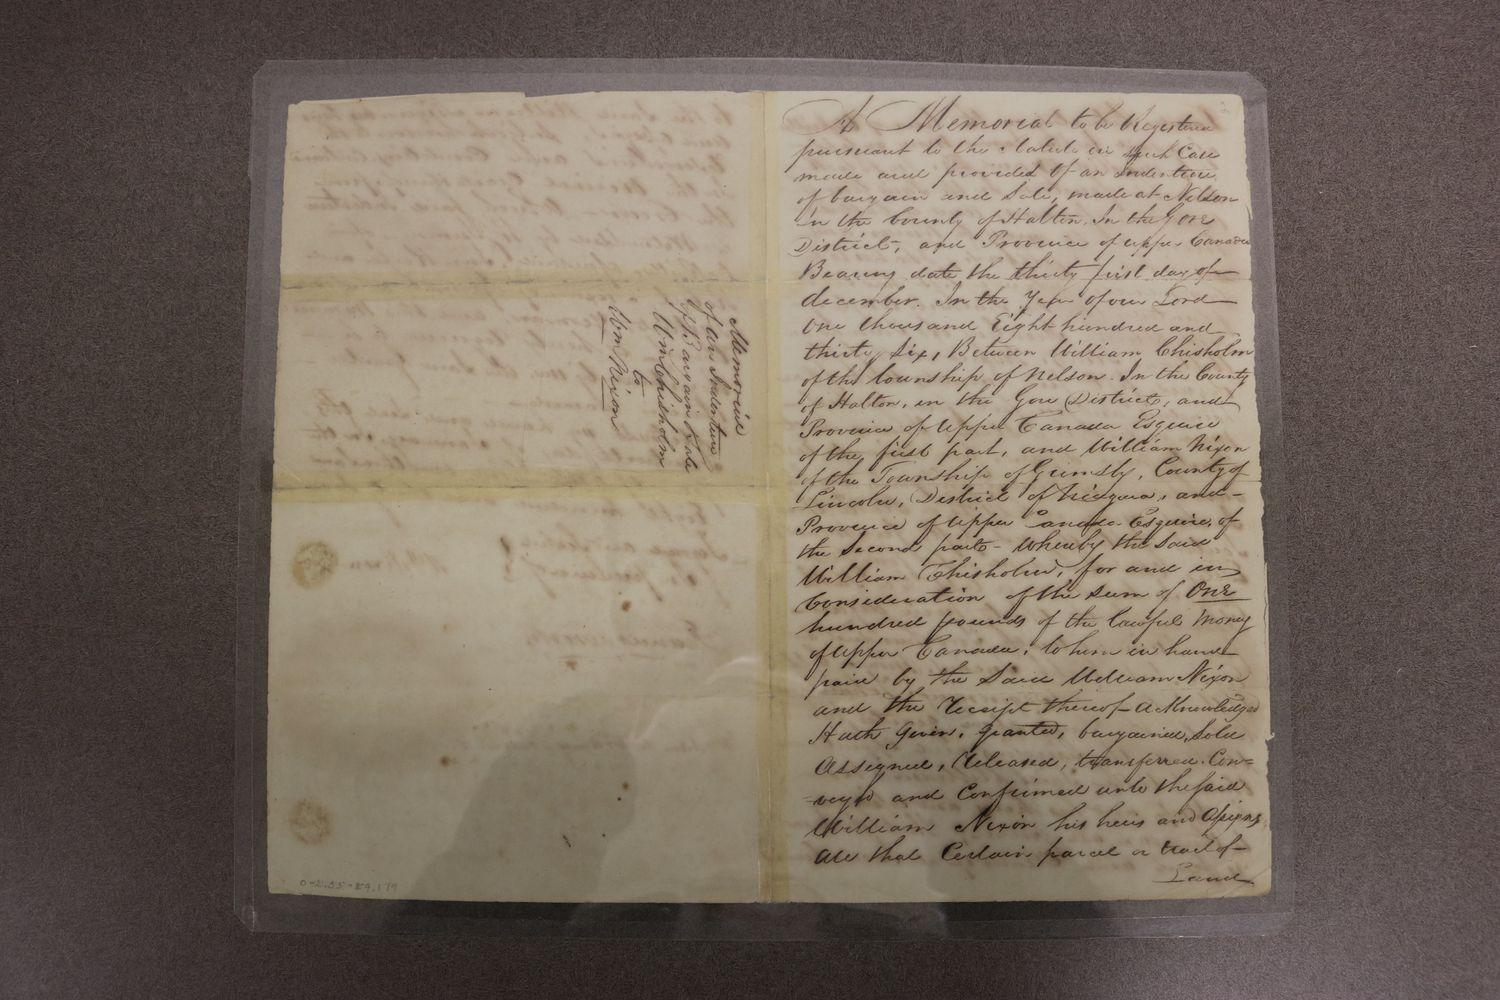 Memorial
of an Indenture
of Bargain & Sale
Wm Chisholm
to
Wm Nixon
A Memorial to be Registered
pursuant to the Statute in such Case
made and provided Of an Indenture
of bargain and Sale, made at Nelson
in the County of Halton. In the Gore
District, and Province of upper Canada
Bearing date the thirty first day of
december. In the Year of our Lord
One thousand Eight hundred and
thirty Six, Between William Chisholm
of the township of Nelson. In the County
of Halton, in the Gore District, and
Province of Upper Canada Esquire
of the first part, and William Nixon
of the Township of Grimsby, County of
Lincoln, District of Niagara, and
Province of Upper Canada Esquire, of
the Second part - Whereby the Said
William Chisholm, for and in
Consideration of the Sum of One
hundred pounds of the lawful Money
of Upper Canada, to him in hand
paid by the Said William Nixon
and the Receipt thereof acknowledged
Hath Given, granted, bargained, Sold
Assigned, Released, transferred. Con=
=veyd and Confirmed unto the said
William Nixon his heirs and Assigns
All that Certain parcel or tract of
Land